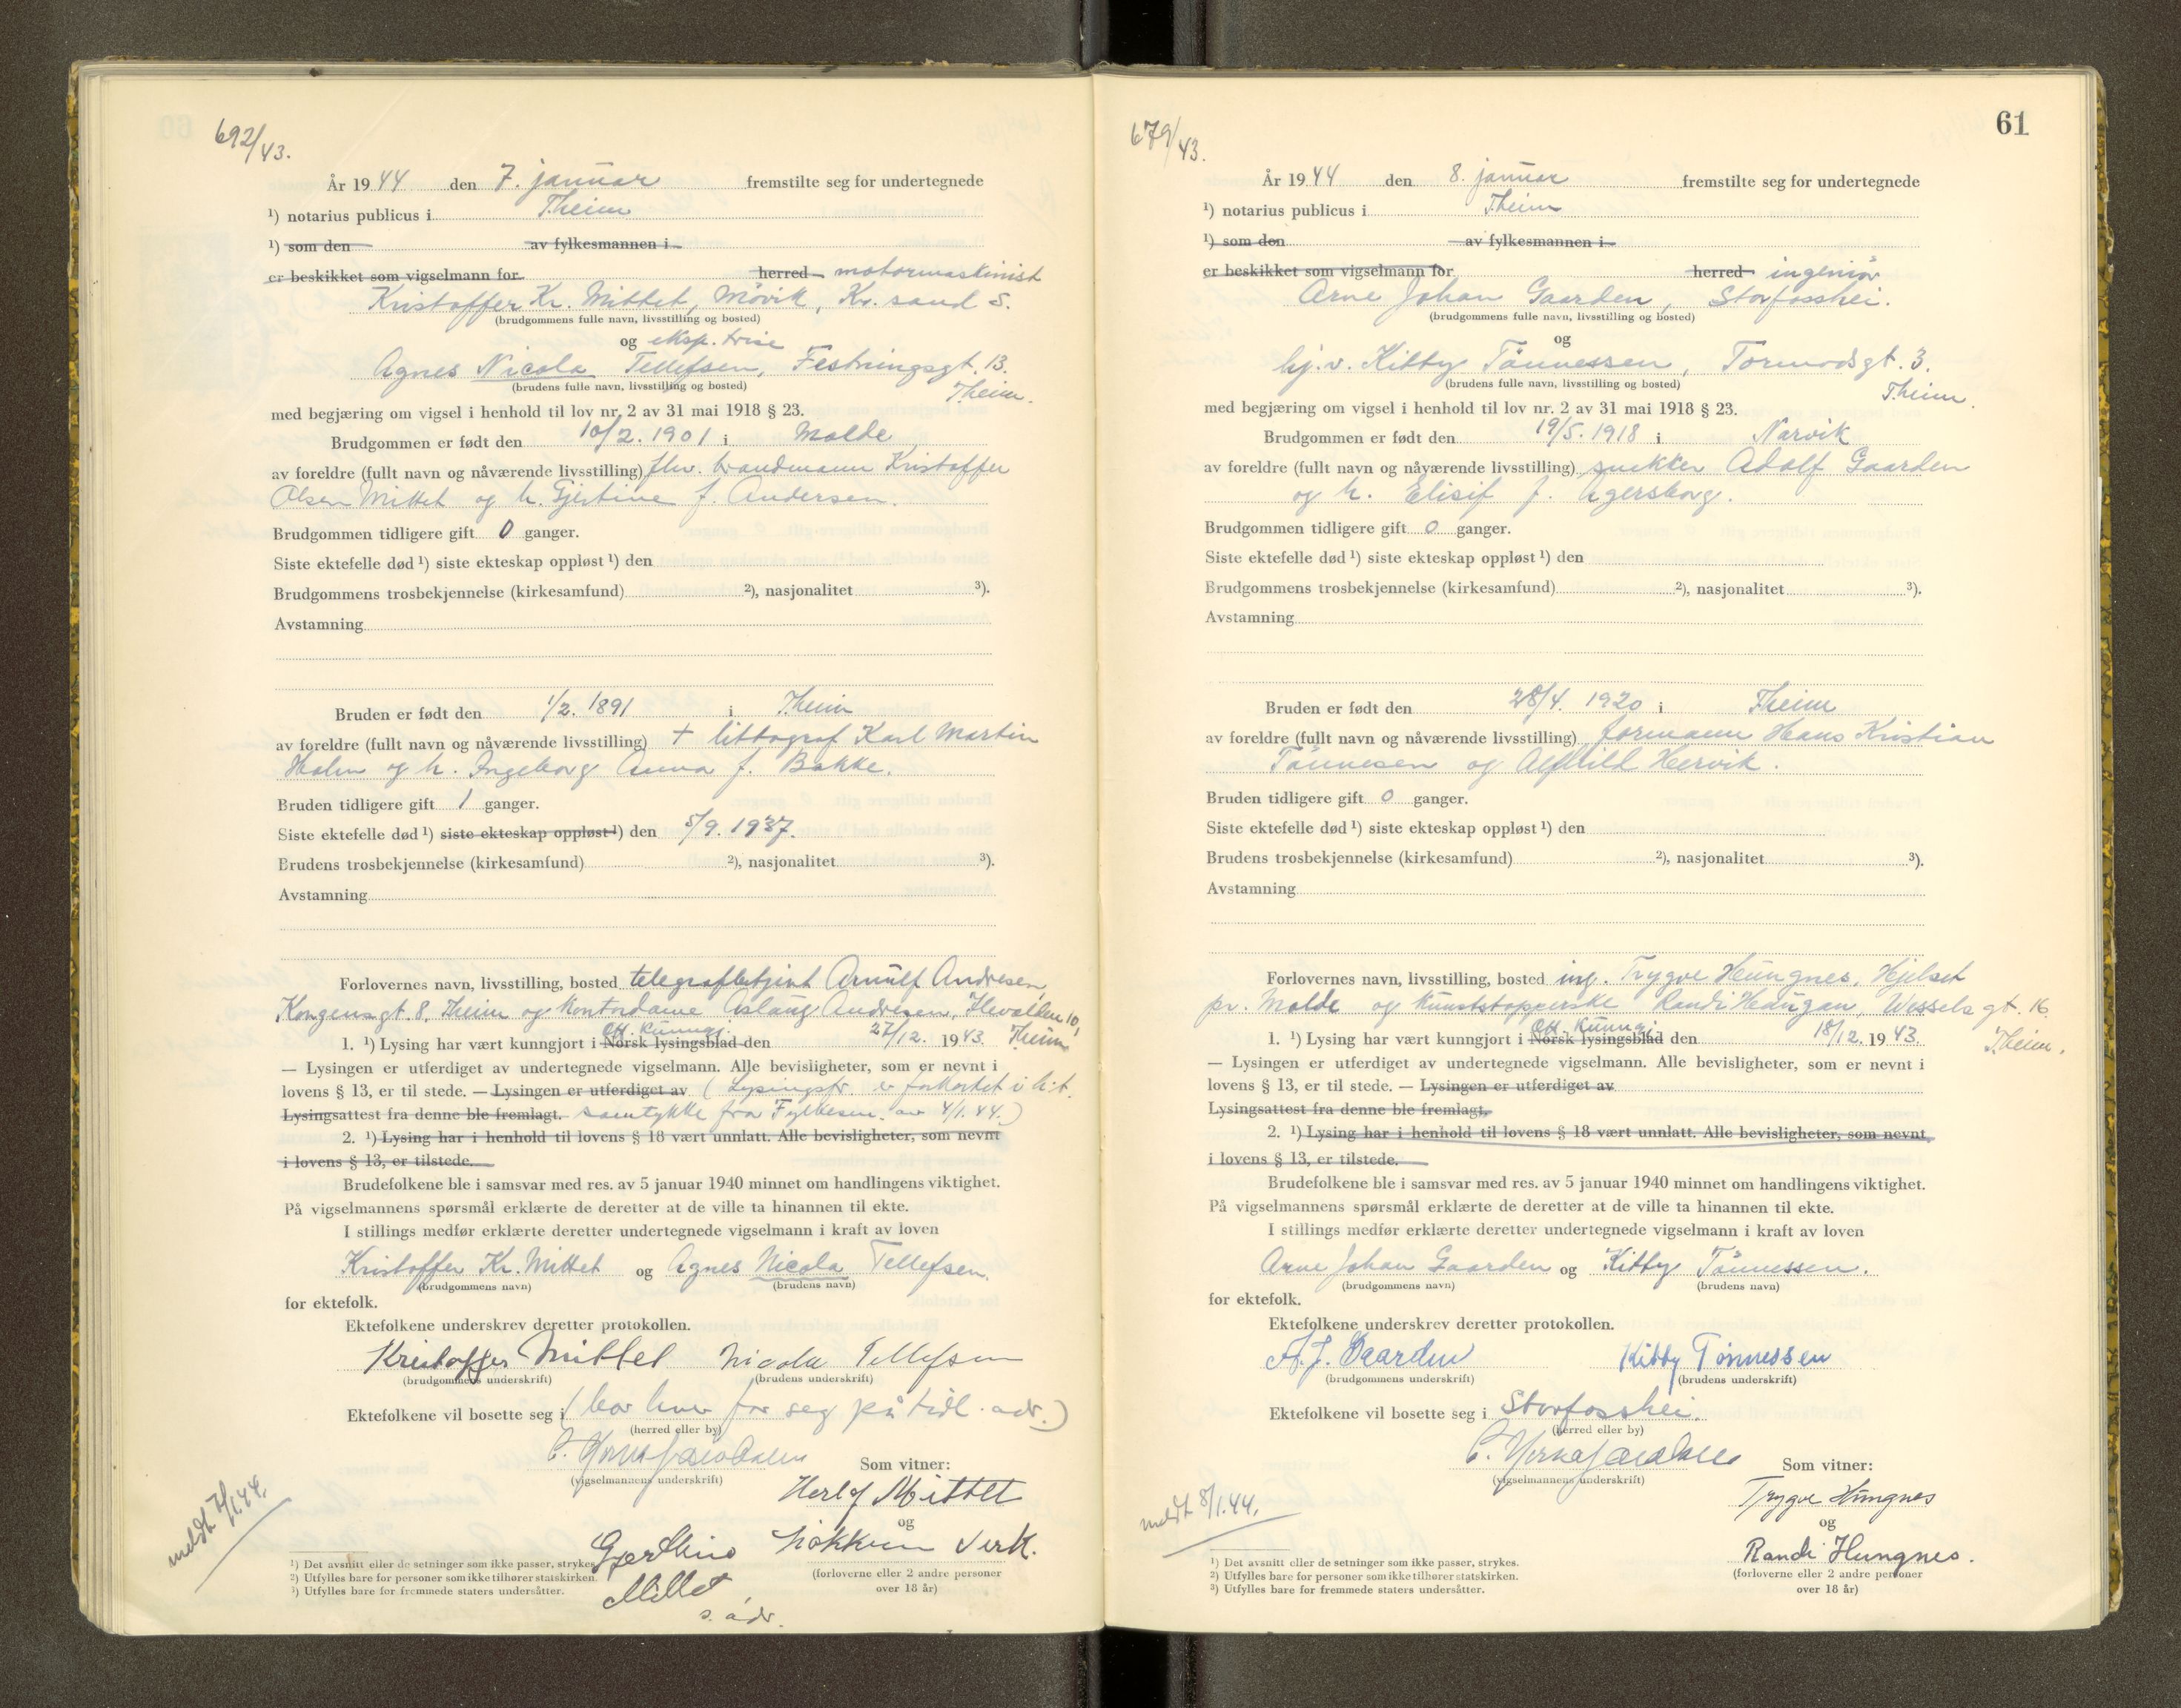 692/43.
År 1944 den 7. januar fremstilte seg for undertegnede
¹) notarius publicus i Theim
¹) som den av fylkesmannen i
er beskikket som vigselmann for herred motormaskinist
Kristoffer Kr. Mittet, Mövik, Kr.sand S.
(brudgommens fulle navn, livsstilling og bosted)
og eksp.trise
Agnes Nicola Tellefsen, Festningsgt. 13.
(brudens fulle navn, livsstilling og bosted)
Theim.
med begjæring om vigsel i henhold til lov nr. 2 av 31 mai 1918 § 23.
Brudgommen er født den 10/2. 1901 i Molde
av foreldre (fullt navn og nåværende livsstilling) fhv. brandmann Kristoffer
Olsen Mittet og h. Gjertine f. Andersen.
Brudgommen tidligere gift 0 ganger.
Siste ektefelle død ¹) siste ekteskap oppløst ¹) den
Brudgommens trosbekjennelse (kirkesamfund) ²), nasjonalitet ³).
Avstamning
Bruden er født den 1/2. 1891 i Theim
av foreldre (fullt navn og nåværende livsstilling) + littograf Karl Martin
Holm og h. Ingeborg Anna f. Bakke.
Bruden tidligere gift 1 ganger.
Siste ektefelle død ¹) siste ekteskap oppløst ¹) den 5/9. 1937.
Brudens trosbekjennelse (kirkesamfund) ²), nasjonalitet ³).
Avstamning
Forlovernes navn, livsstilling, bosted telegrafbetjent Arnulf Andresen,
Kongensgt. 8, Theim og kontordame Aslaug Andresen, Ilevollen 10,
Off. kunngj.
1. ¹) Lysing har vært kunngjort i Norsk lysingsblad den 27/12. 1943. Theim
— Lysingen er utferdiget av undertegnede vigselmann. Alle bevisligheter, som er nevnt i
lovens § 13, er til stede. — Lysingen er utferdiget av (Lysingsfr. er forkortet i h.t.
Lysingsattest fra denne ble fremlagt. samtykke fra Fylkesm. av 4/1.44.)
2. ¹) Lysing har i henhold til lovens § 18 vært unnlatt. Alle bevisligheter, som nevnt
i lovens § 13, er tilstede.
Brudefolkene ble i samsvar med res. av 5 januar 1940 minnet om handlingens viktighet.
På vigselmannens spørsmål erklærte de deretter at de ville ta hinannen til ekte.
I stillings medfør erklærte deretter undertegnede vigselmann i kraft av loven
Kristoffer Kr. Mittet og Agnes Nicola Tellefsen.
(brudgommens navn) (brudens navn)
for ektefolk.
Ektefolkene underskrev deretter protokollen.
Kristoffer Mittet Nicola Tellefsen
(brudgommens underskrift) (brudens underskrift)
Ektefolkene vil bosette seg i (bor hver for seg på tidl. adr.)
(herred eller by)
(vigselmannens underskrift) Som vitner:
Herlof Mittet
og
Løkken Verk.
Gjertine
Mittet
s. adr.
(forloverne eller 2 andre personer
over 18 år)
meldt 7/1.44.
¹) Det avsnitt eller de setninger som ikke passer, strykes.
²) Utfylles bare for personer som ikke tilhører statskirken.
³) Utfylles bare for fremmede staters undersåtter.
61
679/43.
År 1944 den 8. januar fremstilte seg for undertegnede
¹) notarius publicus i Theim
¹) som den av fylkesmannen i
er beskikket som vigselmann for herred ingeniör
Arne Johan Gaarden, Storfosshei.
(brudgommens fulle navn, livsstilling og bosted)
og
hj.v. Kitty Tönnessen, Tormodsgt. 3.
(brudens fulle navn, livsstilling og bosted)
Theim.
med begjæring om vigsel i henhold til lov nr. 2 av 31 mai 1918 § 23.
Brudgommen er født den 19/5. 1918 i Narvik
av foreldre (fullt navn og nåværende livsstilling) snekker Adolf Gaarden
og h. Elisif f. Agersborg.
Brudgommen tidligere gift 0 ganger.
Siste ektefelle død ¹) siste ekteskap oppløst ¹) den
Brudgommens trosbekjennelse (kirkesamfund) ²), nasjonalitet ³).
Avstamning
Bruden er født den 28/4. 1920 i Theim
av foreldre (fullt navn og nåværende livsstilling) formann Hans Kristian
Tönnesen og Alfhild Hervik.
Bruden tidligere gift 0 ganger.
Siste ektefelle død ¹) siste ekteskap oppløst ¹) den
Brudens trosbekjennelse (kirkesamfund) ²), nasjonalitet ³).
Avstamning
Forlovernes navn, livsstilling, bosted ing. Trygve Hungnes, Hjelset
pr. Molde og kunststopperske Randi Haugan, Wessels gt. 16.
Off. Kunngj.
1. ¹) Lysing har vært kunngjort i Norsk lysingsblad den 18/12. 1943. Theim.
— Lysingen er utferdiget av undertegnede vigselmann. Alle bevisligheter, som er nevnt i
lovens § 13, er til stede. — Lysingen er utferdiget av
Lysingsattest fra denne ble fremlagt.
2. ¹) Lysing har i henhold til lovens § 18 vært unnlatt. Alle bevisligheter, som nevnt
i lovens § 13, er tilstede.
Brudefolkene ble i samsvar med res. av 5 januar 1940 minnet om handlingens viktighet.
På vigselmannens spørsmål erklærte de deretter at de ville ta hinannen til ekte.
I stillings medfør erklærte deretter undertegnede vigselmann i kraft av loven
Arne Johan Gaarden og Kitty Tönnessen.
(brudgommens navn) (brudens navn)
for ektefolk.
Ektefolkene underskrev deretter protokollen.
A. J. Gaarden Kitty Tönnessen
(brudgommens underskrift) (brudens underskrift)
Ektefolkene vil bosette seg i Storfosshei.
(herred eller by)
(vigselmannens underskrift) Som vitner:
Trygve Hungnes
og
Randi Hungnes.
(forloverne eller 2 andre personer
over 18 år)
meldt 8/1.44.
¹) Det avsnitt eller de setninger som ikke passer, strykes.
²) Utfylles bare for personer som ikke tilhører statskirken.
³) Utfylles bare for fremmede staters undersåtter.